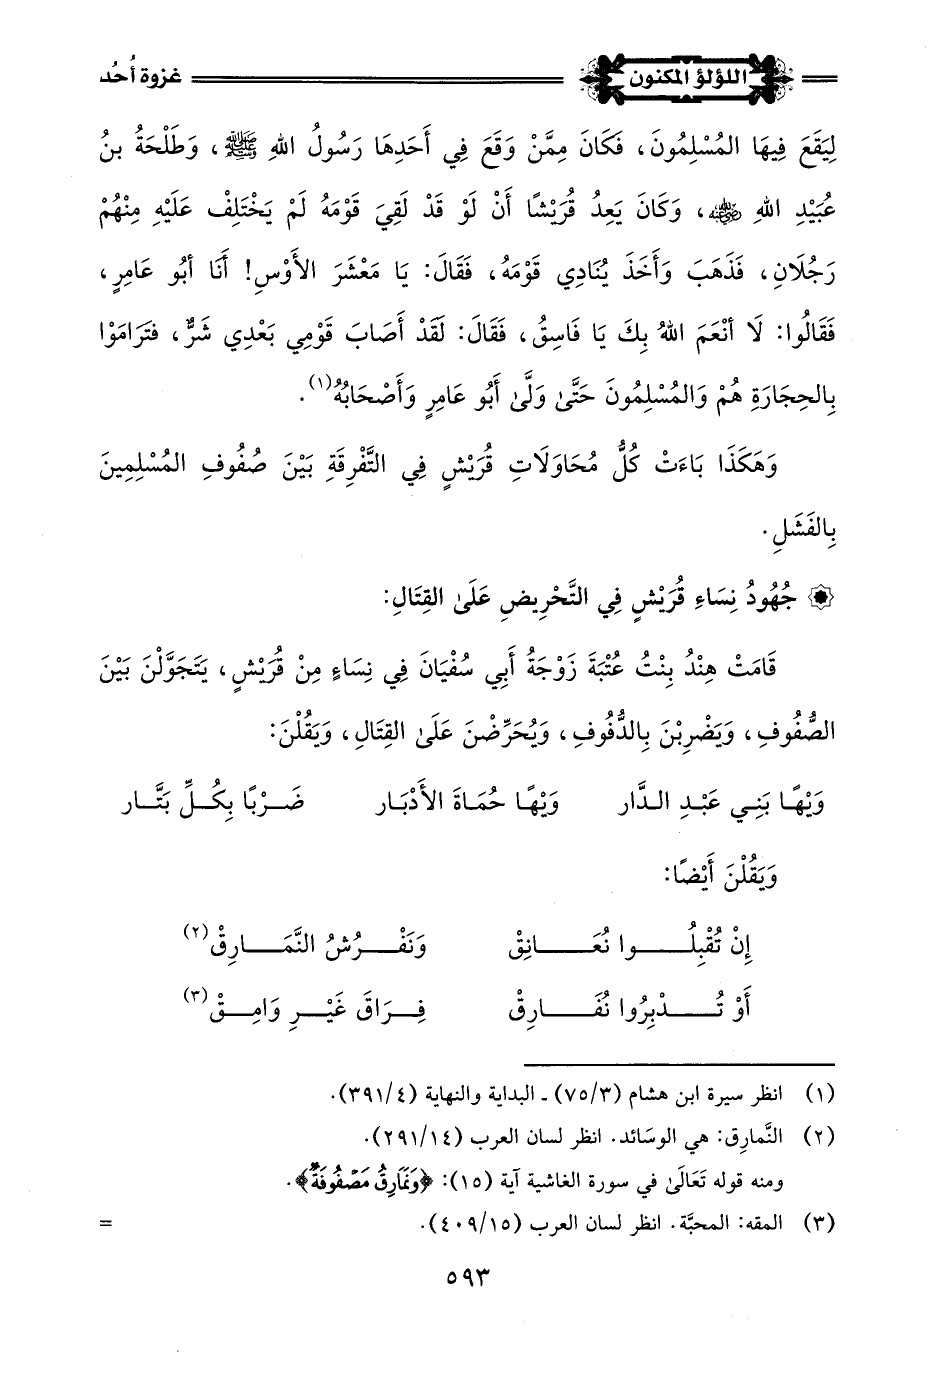 اللؤلؤ المكنون غزوة أُحُد
لِيَقَعَ فِيهَا المُسْلِمُونَ، فَكَانَ مِمَّنْ وَقَعَ فِي أَحَدِهَا رَسُولُ اللهِ ﷺ، وَطَلْحَةُ بنُ
عُبَيْدِ اللهِ رضي الله عنه، وَكَانَ يَعِدُ قُرَيْشًا أَنْ لَوْ قَدْ لَقِيَ قَوْمَهُ لَمْ يَخْتَلِفْ عَلَيْهِ مِنْهُمْ
رَجُلَانِ، فَذَهَبَ وَأَخَذَ يُنَادِي قَوْمَهُ، فَقَالَ: يَا مَعْشَرَ الأَوْسِ! أَنَا أَبُو عَامِرٍ،
فَقَالُوا: لَا أَنْعَمَ اللهُ بِكَ يَا فَاسِقُ، فَقَالَ: لَقَدْ أَصَابَ قَوْمِي بَعْدِي شَرٌّ، فَتَرَامَوْا
بِالحِجَارَةِ هُمْ وَالمُسْلِمُونَ حَتَّىٰ وَلَّىٰ أَبُو عَامِرٍ وَأَصْحَابُهُ(١).
وَهَكَذَا بَاءَتْ كُلُّ مُحَاوَلَاتِ قُرَيْشٍ فِي التَّفْرِقَةِ بَيْنَ صُفُوفِ المُسْلِمِينَ
بِالفَشَلِ.
۞ جُهُودُ نِسَاءِ قُرَيْشٍ فِي التَّحْرِيضِ عَلَىٰ القِتَالِ:
قَامَتْ هِنْدُ بِنْتُ عُتْبَةَ زَوْجَةُ أَبِي سُفْيَانَ فِي نِسَاءٍ مِنْ قُرَيْشٍ، يَتَجَوَّلْنَ بَيْنَ
الصُّفُوفِ، وَيَضْرِبْنَ بِالدُّفُوفِ، وَيُحَرِّضْنَ عَلَىٰ القِتَالِ، وَيَقُلْنَ:
وَيْهًا بَنِي عَبْدِ الدَّار وَيْهًا حُمَاةَ الأَدْبَار ضَرْبًا بِكُلِّ بَتَّار
وَيَقُلْنَ أَيْضًا:
إِنْ تُقْبِلُوا نُعَانِقْ وَنَفْرُشُ النَّمَارِقْ(٢)
أَوْ تُدْبِرُوا نُفَارِقْ فِرَاقَ غَيْرِ وَامِقْ(٣)
(١) انظر سيرة ابن هشام (٧٥/٣) ـ البداية والنهاية (٣٩١/٤).
(٢) النَّمارِق: هي الوسَائد. انظر لسان العرب (٢٩١/١٤).
ومنه قوله تَعَالَىٰ في سورة الغاشية آية (١٥): ﴿وَنَمَارِقُ مَصْفُوفَةٌ﴾.
(٣) المقه: المحبَّة. انظر لسان العرب (٤٠٩/١٥). =
٥٩٣